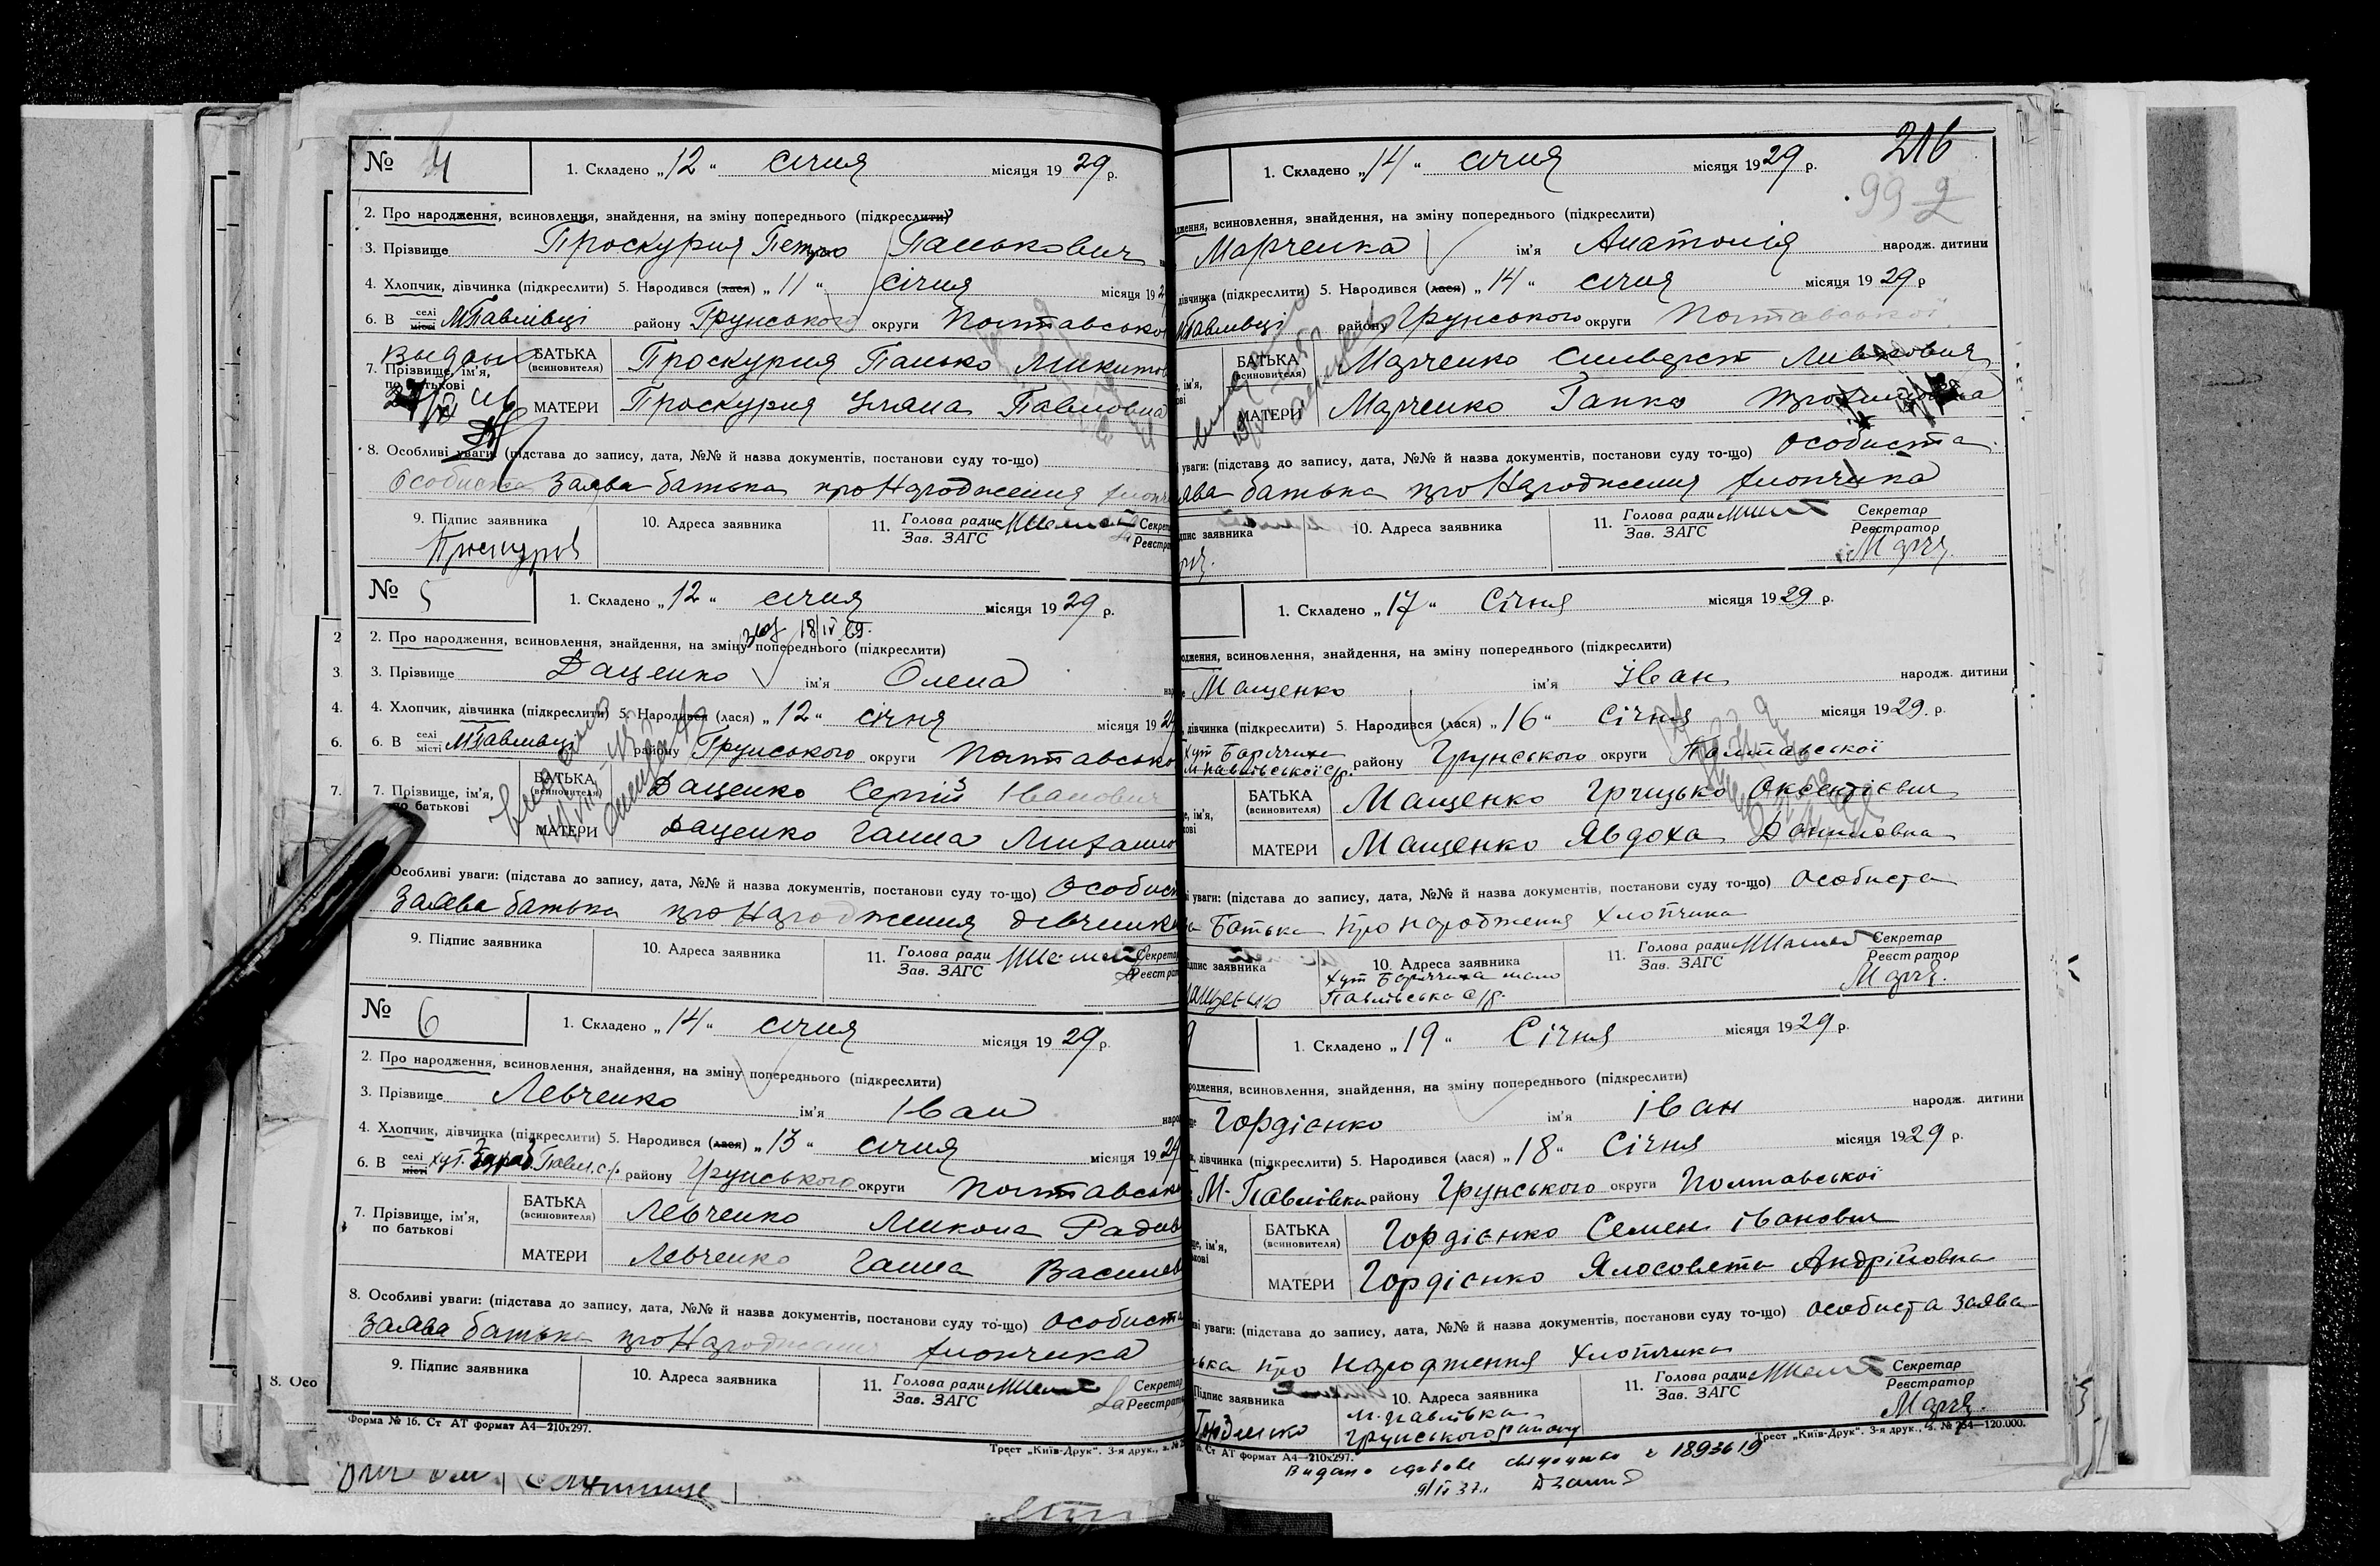 № 4
1. Складено „12“ січня місяця 1929 р.
2. Про народження, всиновлення, знайдення, на зміну попереднього (підкреслити)
3. Прізвище Проскурня Петро Панькович
4. Хлопчик, дівчинка (підкреслити) 5. Народився (лася) „11“ січня місяця 192
6. В селі місті МПавлівці району Грунського округи Полтавсько
Выдано
7. Прізвище, ім'я, по батькові
БАТЬКА (всиновителя) Проскурня Панько Микитов
МАТЕРИ Проскурня Уляна Павловна
8. Особливі уваги: (підстава до запису, дата, №№ й назва документів, постанови суду то-що)
Особиста Заява батька про Народження хлопчи
9. Підпис заявника
10. Адреса заявника
11. Голова ради Зав. ЗАГС
Секрета
Реєстра
№ 5
1. Складено „12“ січня місяця 1929 р.
18/IV 69.
2. Про народження, всиновлення, знайдення, на зміну попереднього (підкреслити)
3. Прізвище Даценко ім'я Олена
4. Хлопчик, дівчинка (підкреслити) 5. Народився (лася) „12“ січня місяця 192
6. В селі місті МПавлівці району Грунського округи Полтавсько
7. Прізвище, ім'я, по батькові
БАТЬКА (всиновителя) Даценко Сергій Іванович
МАТЕРИ Даценко Ганна Михайло
Особливі уваги: (підстава до запису, дата, №№ й назва документів, постанови суду то-що) Особист
Заява батька про Народження дівчинки
9. Підпис заявника
10. Адреса заявника
11. Голова ради Зав. ЗАГС
Секрета
Реєстрат
№ 6
1. Складено „14“ січня місяця 1929 р.
2. Про народження, всиновлення, знайдення, на зміну попереднього (підкреслити)
3. Прізвище Левченко ім'я Іван
4. Хлопчик, дівчинка (підкреслити) 5. Народився (лася) „13“ січня місяця 1929
6. В селі місті хут. району Грунського округи Полтавсько
7. Прізвище, ім'я, по батькові
БАТЬКА (всиновителя) Левченко Микола Радив
МАТЕРИ Левченко Ганна Василев
8. Особливі уваги: (підстава до запису, дата, №№ й назва документів, постанови суду то-що) Особиста
Заява батька про Народження хлопчика
9. Підпис заявника
10. Адреса заявника
11. Голова ради Зав. ЗАГС
Секретар
Реєстрато
Форма № 16. Ст АТ формат А4—210х297.
Трест „Київ-Друк“. 3-я друк., з. №
8. Осо
216
1. Складено „14“ січня місяця 1929 р.
99
дження, всиновлення, знайдення, на зміну попереднього (підкреслити)
Марченко ім'я Анатолія народж. дитини
дівчинка (підкреслити) 5. Народився (лася) „14“ січня місяця 1929 р
МПавлівці району Грунського округи Полтавської
БАТЬКА (всиновителя) Марченко Сильверст
МАТЕРИ Марченко Гапка
уваги: (підстава до запису, дата, №№ й назва документів, постанови суду то-що) Особиста
ява батька про Народження хлопчика
дпис заявника
10. Адреса заявника
11. Голова ради Зав. ЗАГС
Секретар
Реєстратор
1. Складено „17“ Січня місяця 1929 р.
одження, всиновлення, знайдення, на зміну попереднього (підкреслити)
Мащенко ім'я Іван народж. дитини
дівчинка (підкреслити) 5. Народився (лася) „16“ Січня місяця 1929. р.
хут Боричиха
М Павлівської с/р. району Грунського округи Полтавської
БАТЬКА (всиновителя) Мащенко Грицько Оксентієвич
МАТЕРИ Мащенко Явдоха Даниловна
уваги: (підстава до запису, дата, №№ й назва документів, постанови суду то-що) Особиста
Батька про народження хлопчика
дпис заявника
ащенко
10. Адреса заявника
хут Боричиха мало
Павлівська с/р.
11. Голова ради Зав. ЗАГС
Секретар
Реєстратор
9
1. Складено „19“ Січня місяця 1929 р.
родження, всиновлення, знайдення, на зміну попереднього (підкреслити)
Гордієнко ім'я Іван народж. дитини
дівчинка (підкреслити) 5. Народився (лася) „18“ Січня місяця 1929 р.
М-Павлівка району Грунського округи Полтавської
БАТЬКА (всиновителя) Гордієнко Семен Іванович
МАТЕРИ Гордієнко Ялосовета Андрійовна
ві уваги: (підстава до запису, дата, №№ й назва документів, постанови суду то-що) Особиста Заява
ька про народження хлопчика
Підпис заявника
10. Адреса заявника
м. Павлівка
Грунського району
11. Голова ради Зав. ЗАГС
Секретар
Реєстратор
16. Ст АТ формат А4—210х297.
Трест „Київ-Друк“. 3-я друк., з. № 254—120.000.
Видано 1893619